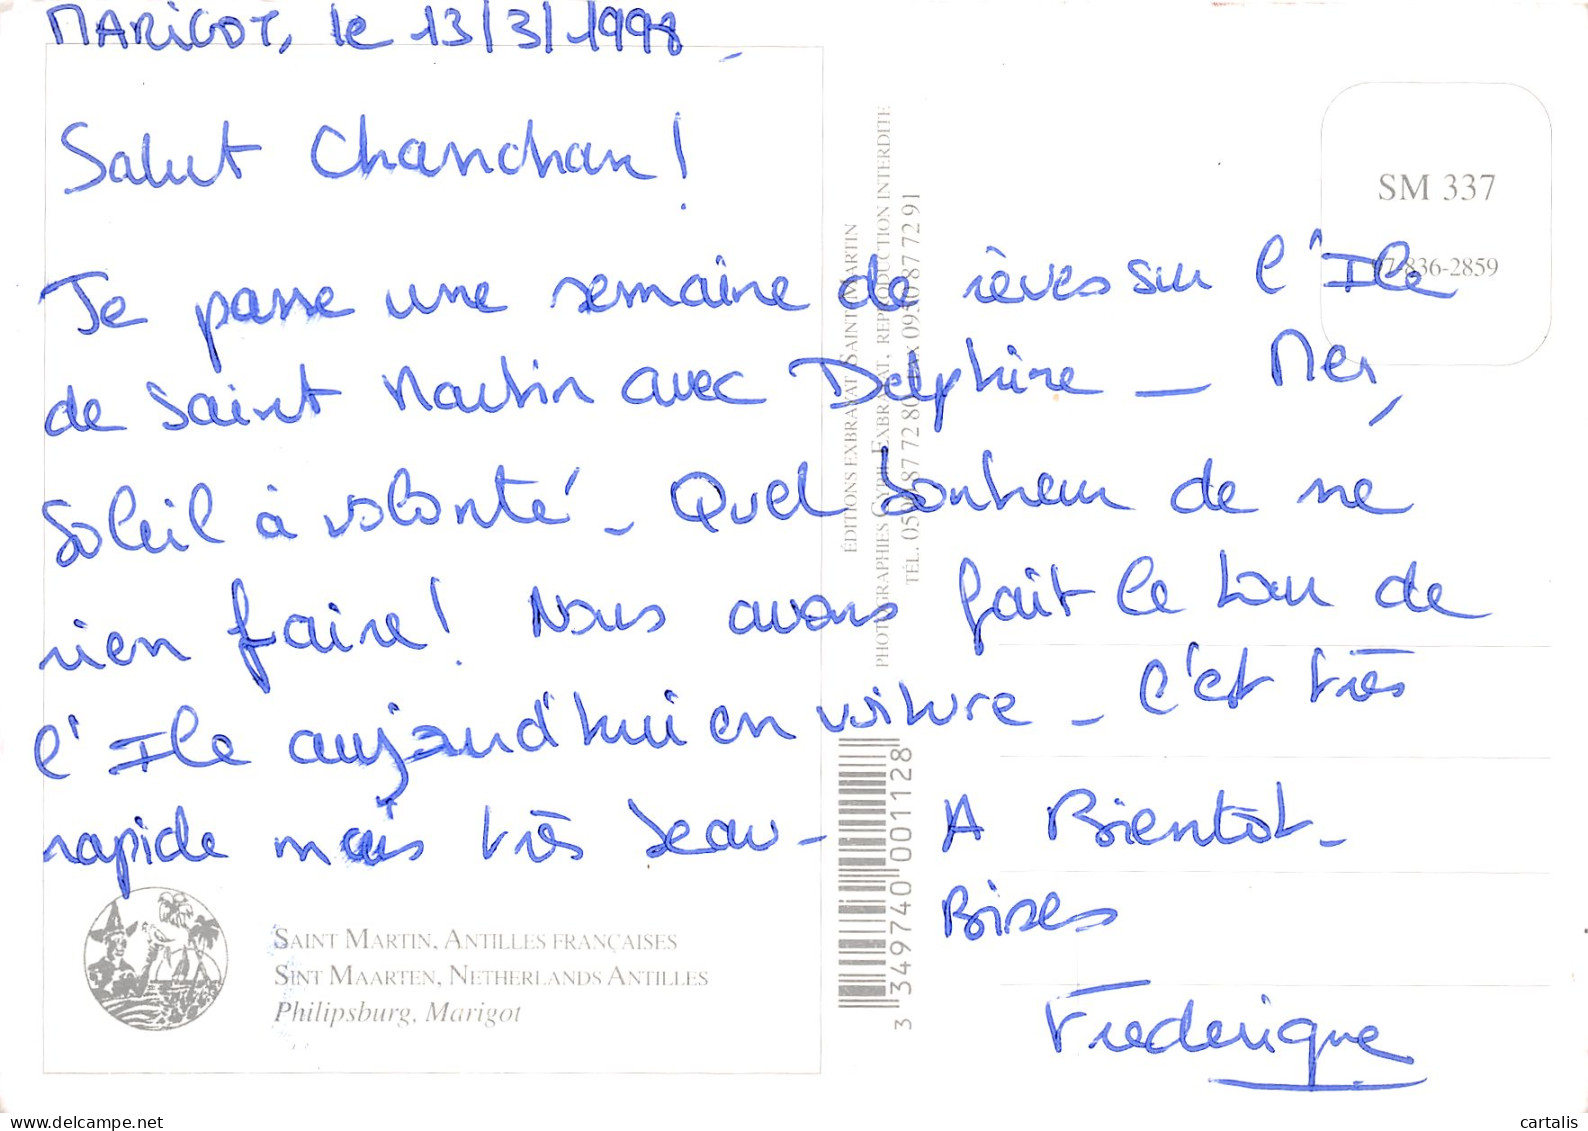 MARIGOT, le 13/3/1998
Salut Chanchan !
Je passe une semaine de rèves sur l'Ile
de Saint Martin avec Delphine _ Mer,
Soleil à volonté _ Quel bonheur de ne
rien faire ! Nous avons fait le tour de
l'Ile aujourd'hui en voiture _ C'est très
rapide mais très beau _ A Bientôt _
Bises
Frederique
SM 337
836-2859
ÉDITIONS EXBRAYAT SAINT MARTIN
PHOTOGRAPHIES CYRIL EXBRAYAT, REPRODUCTION INTERDITE
TÉL. 0590 87 72 80 FAX 0590 87 72 91
3 349740 001128
SAINT MARTIN, ANTILLES FRANÇAISES
SINT MAARTEN, NETHERLANDS ANTILLES
Philipsburg, Marigot
delcampe.net
cartalis